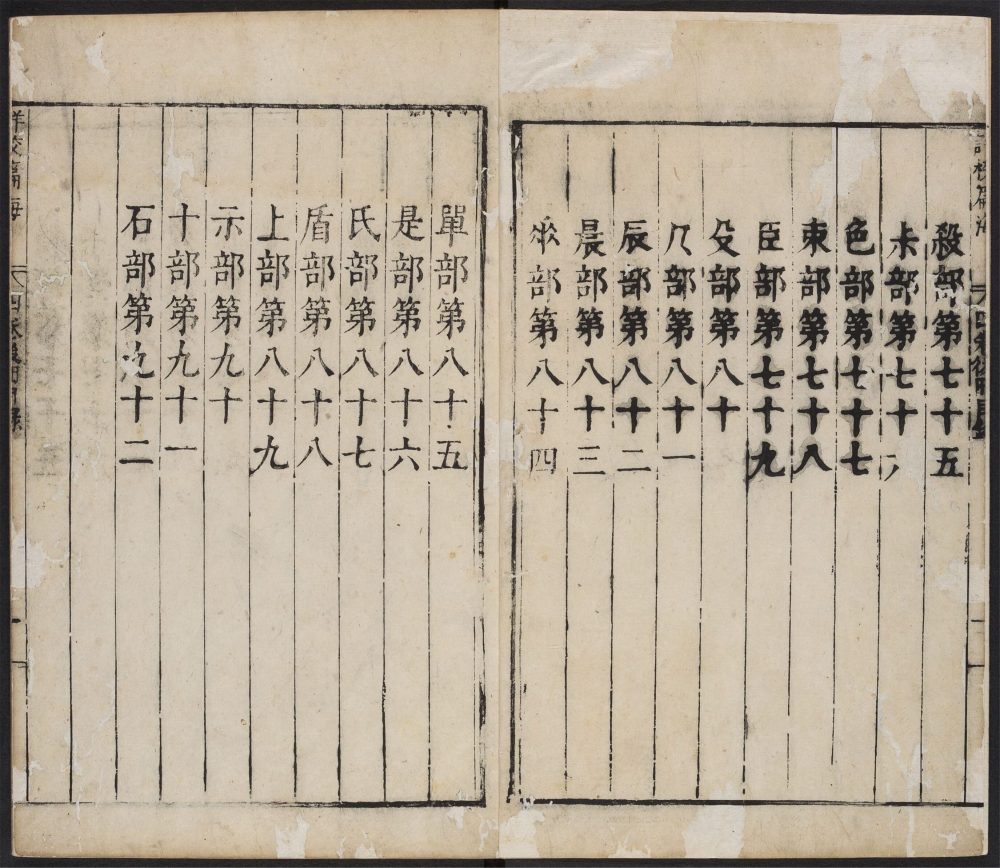 殺部第七十五
尗部第七十
色部第七十七
束部第七十八
臣部第七十九
殳部第八十
部第八十一
辰部第八十二
晨部第八十三
部第八十四
單部第八十五
是部第八十六
氏部第八十七
盾部第八十八
上部第八十九
示部第九十
十部第九十一
石部第九十二
詳校篇海